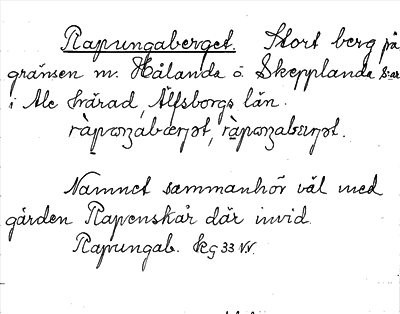 Rapungaberget. Stort berg på
gränsen m. Hålanda o. Skepplanda s:ar
i Ale härad, Älfsborgs län.
Namnet sammanhör väl med
gården Rapenskår där invid.
Rapungab. Kg 33 VV.